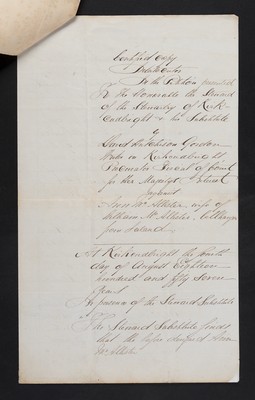 Certified Copy
Interlocutor
In the Petition presented
To the Honorable the Steward
of the Stewartry of Kirk-
cudbright & his Substitute
by
David Hutchison Gordon
Writer in Kirkcudbright
Procurator Fiscal of Court
for Her Majesty's Interest
against
Ann McAllister, wife of
William McAllister,
from Ireland
At Kirkcudbright the fourth
day of August Eighteen
hundred and fifty seven
years
In presence of the Steward Substitute
The Steward Substitute finds
that the
McAllister